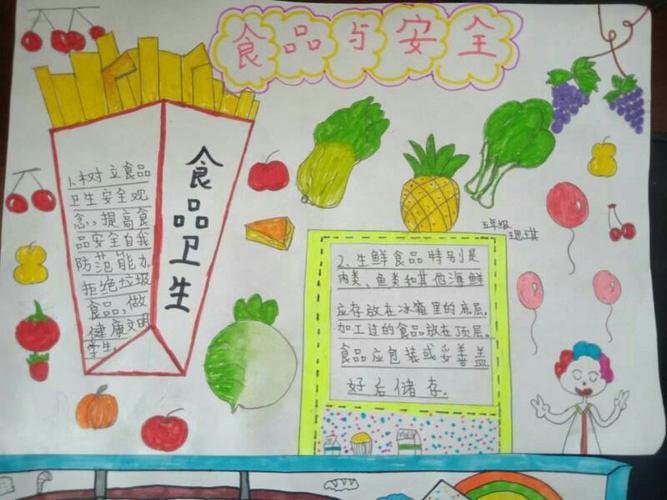 食品与安全
食品卫生
1.树立食品
卫生安全观
念,提高食
品安全自我
防范能力,
拒绝垃圾
食品,做
健康文明
学生.
五年级
思琪
2.生鲜食品特别是
肉类、鱼类和其他海鲜
应存放在冰箱里的底层.
加工过的食品放在顶层.
食品应包装或妥善盖
好后储存.